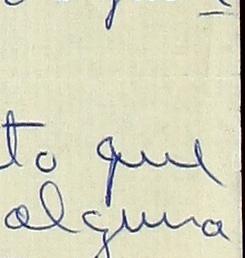 to que
alguna